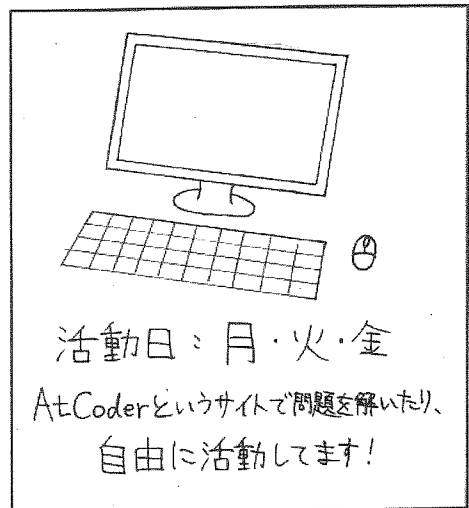 活動日：月・火・金
AtCoderというサイトで問題を解いたり、
自由に活動してます！